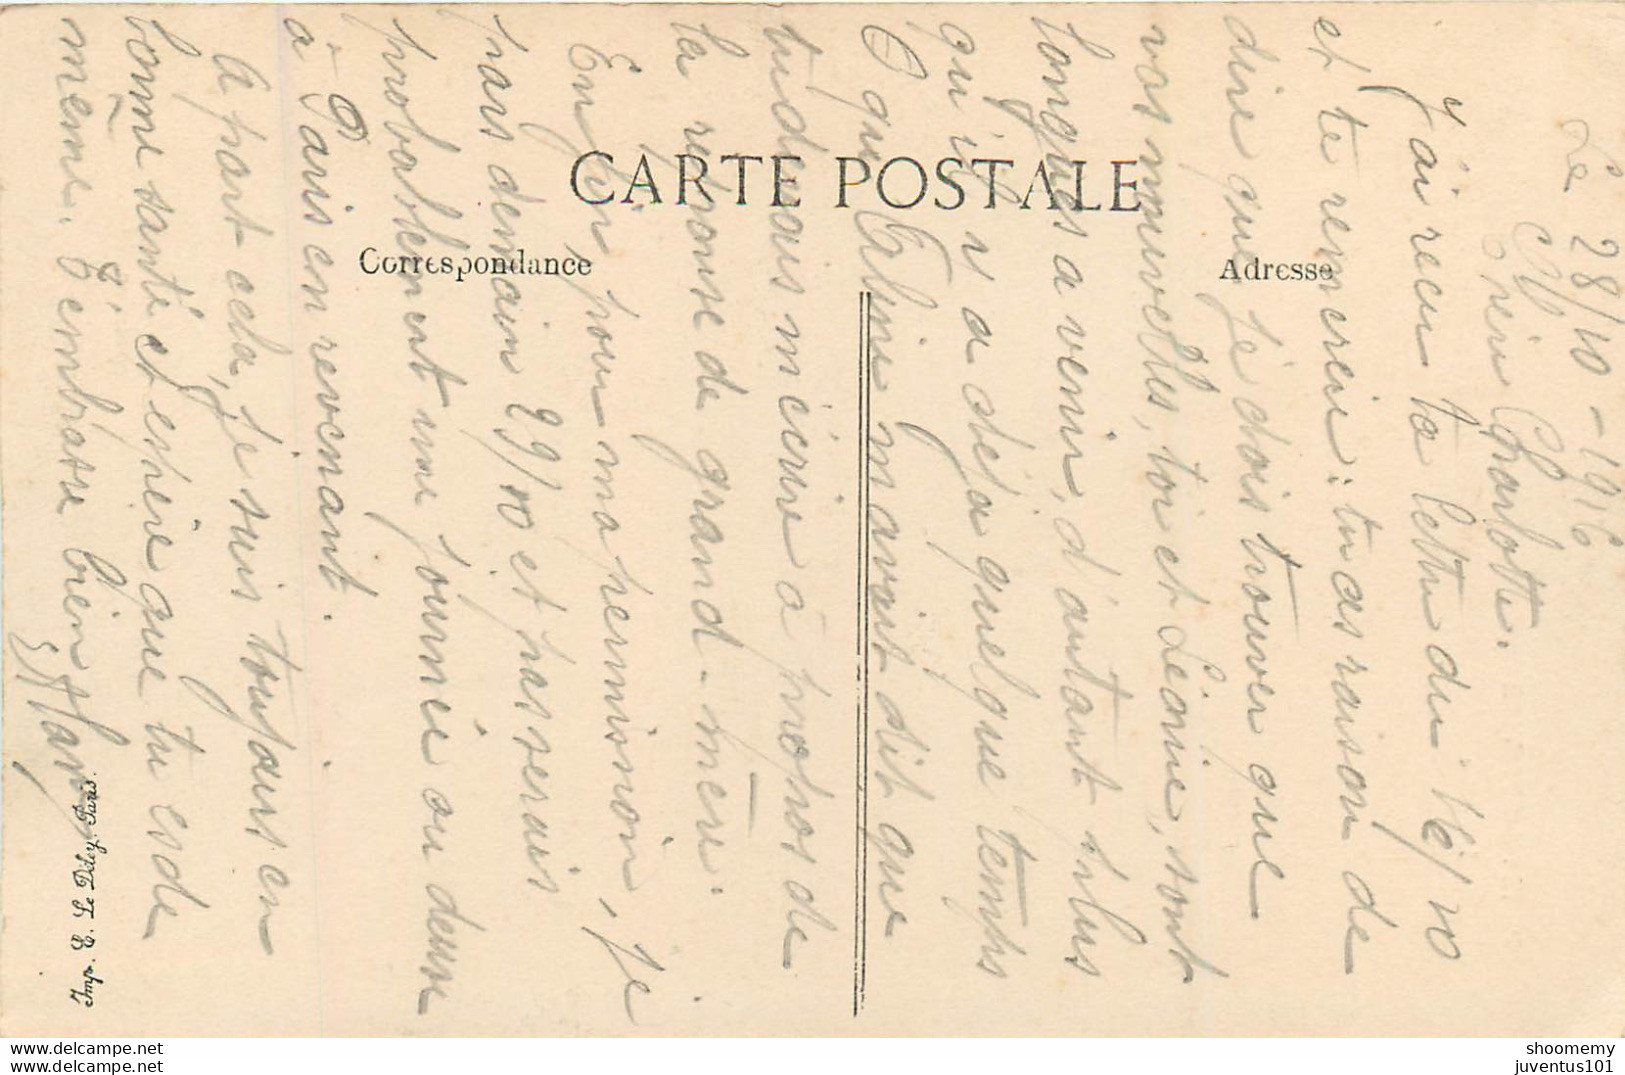 Le 28/10 - 1916
M chérie Charlotte.
J'ai recu ta lettre du 16/10
et te remercie: tu as raison de
dire que je dois trouver que
vos nouvelles, toi et Léonie, sont
longues a venir, d'autant plus
qu'il y a déja quelque temps
que Céline m'avait dit que
tu devais m'écrire à propos de
la reponse de grand-mère.
Enfin pour ma permission, je
pars demain 29/10 et passerais
probablement une journée ou deux
à Paris en revenant.
A part cela, je suis toujours en
bonne santé et espère que tu es de
meme. T'embrasse bien
CARTE POSTALE
Correspondance
Adresse
Imp. E. Le Deley, Paris.
shoomemy
http://www.delcampe.net
juventus101